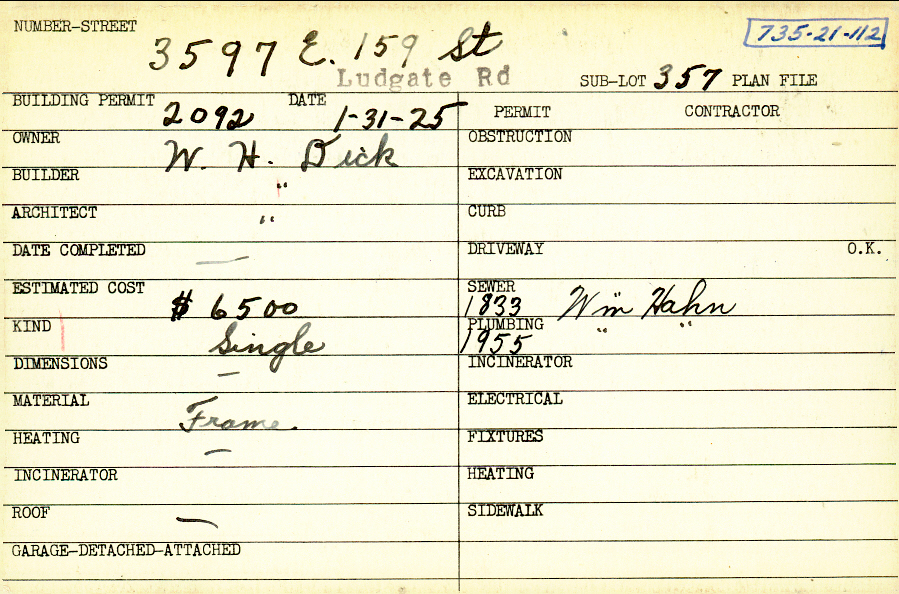 NUMBER-STREET 3597 E. 159 St 735-21-112
Ludgate Rd SUB-LOT 357 PLAN FILE
BUILDING PERMIT 2092 DATE 1-31-25 PERMIT CONTRACTOR
OWNER W. H. Dick OBSTRUCTION
BUILDER " EXCAVATION
ARCHITECT " CURB
DATE COMPLETED — DRIVEWAY O.K.
ESTIMATED COST $ 6500 SEWER 1833 Wm Hahn
KIND Single PLUMBING 1955 " "
DIMENSIONS — INCINERATOR
MATERIAL Frame. ELECTRICAL
HEATING — FIXTURES
INCINERATOR HEATING
ROOF — SIDEWALK
GARAGE-DETACHED-ATTACHED